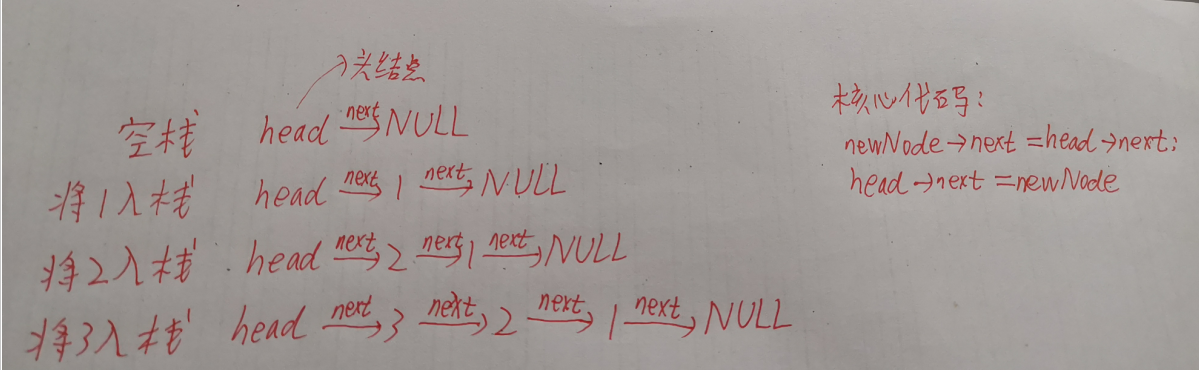 头结点
空栈 head next→ NULL
将1入栈 head next→ 1 next→ NULL
将2入栈 head next→ 2 next→ 1 next→ NULL
将3入栈 head next→ 3 next→ 2 next→ 1 next→ NULL
核心代码:
newNode→next=head→next;
head→next=newNode